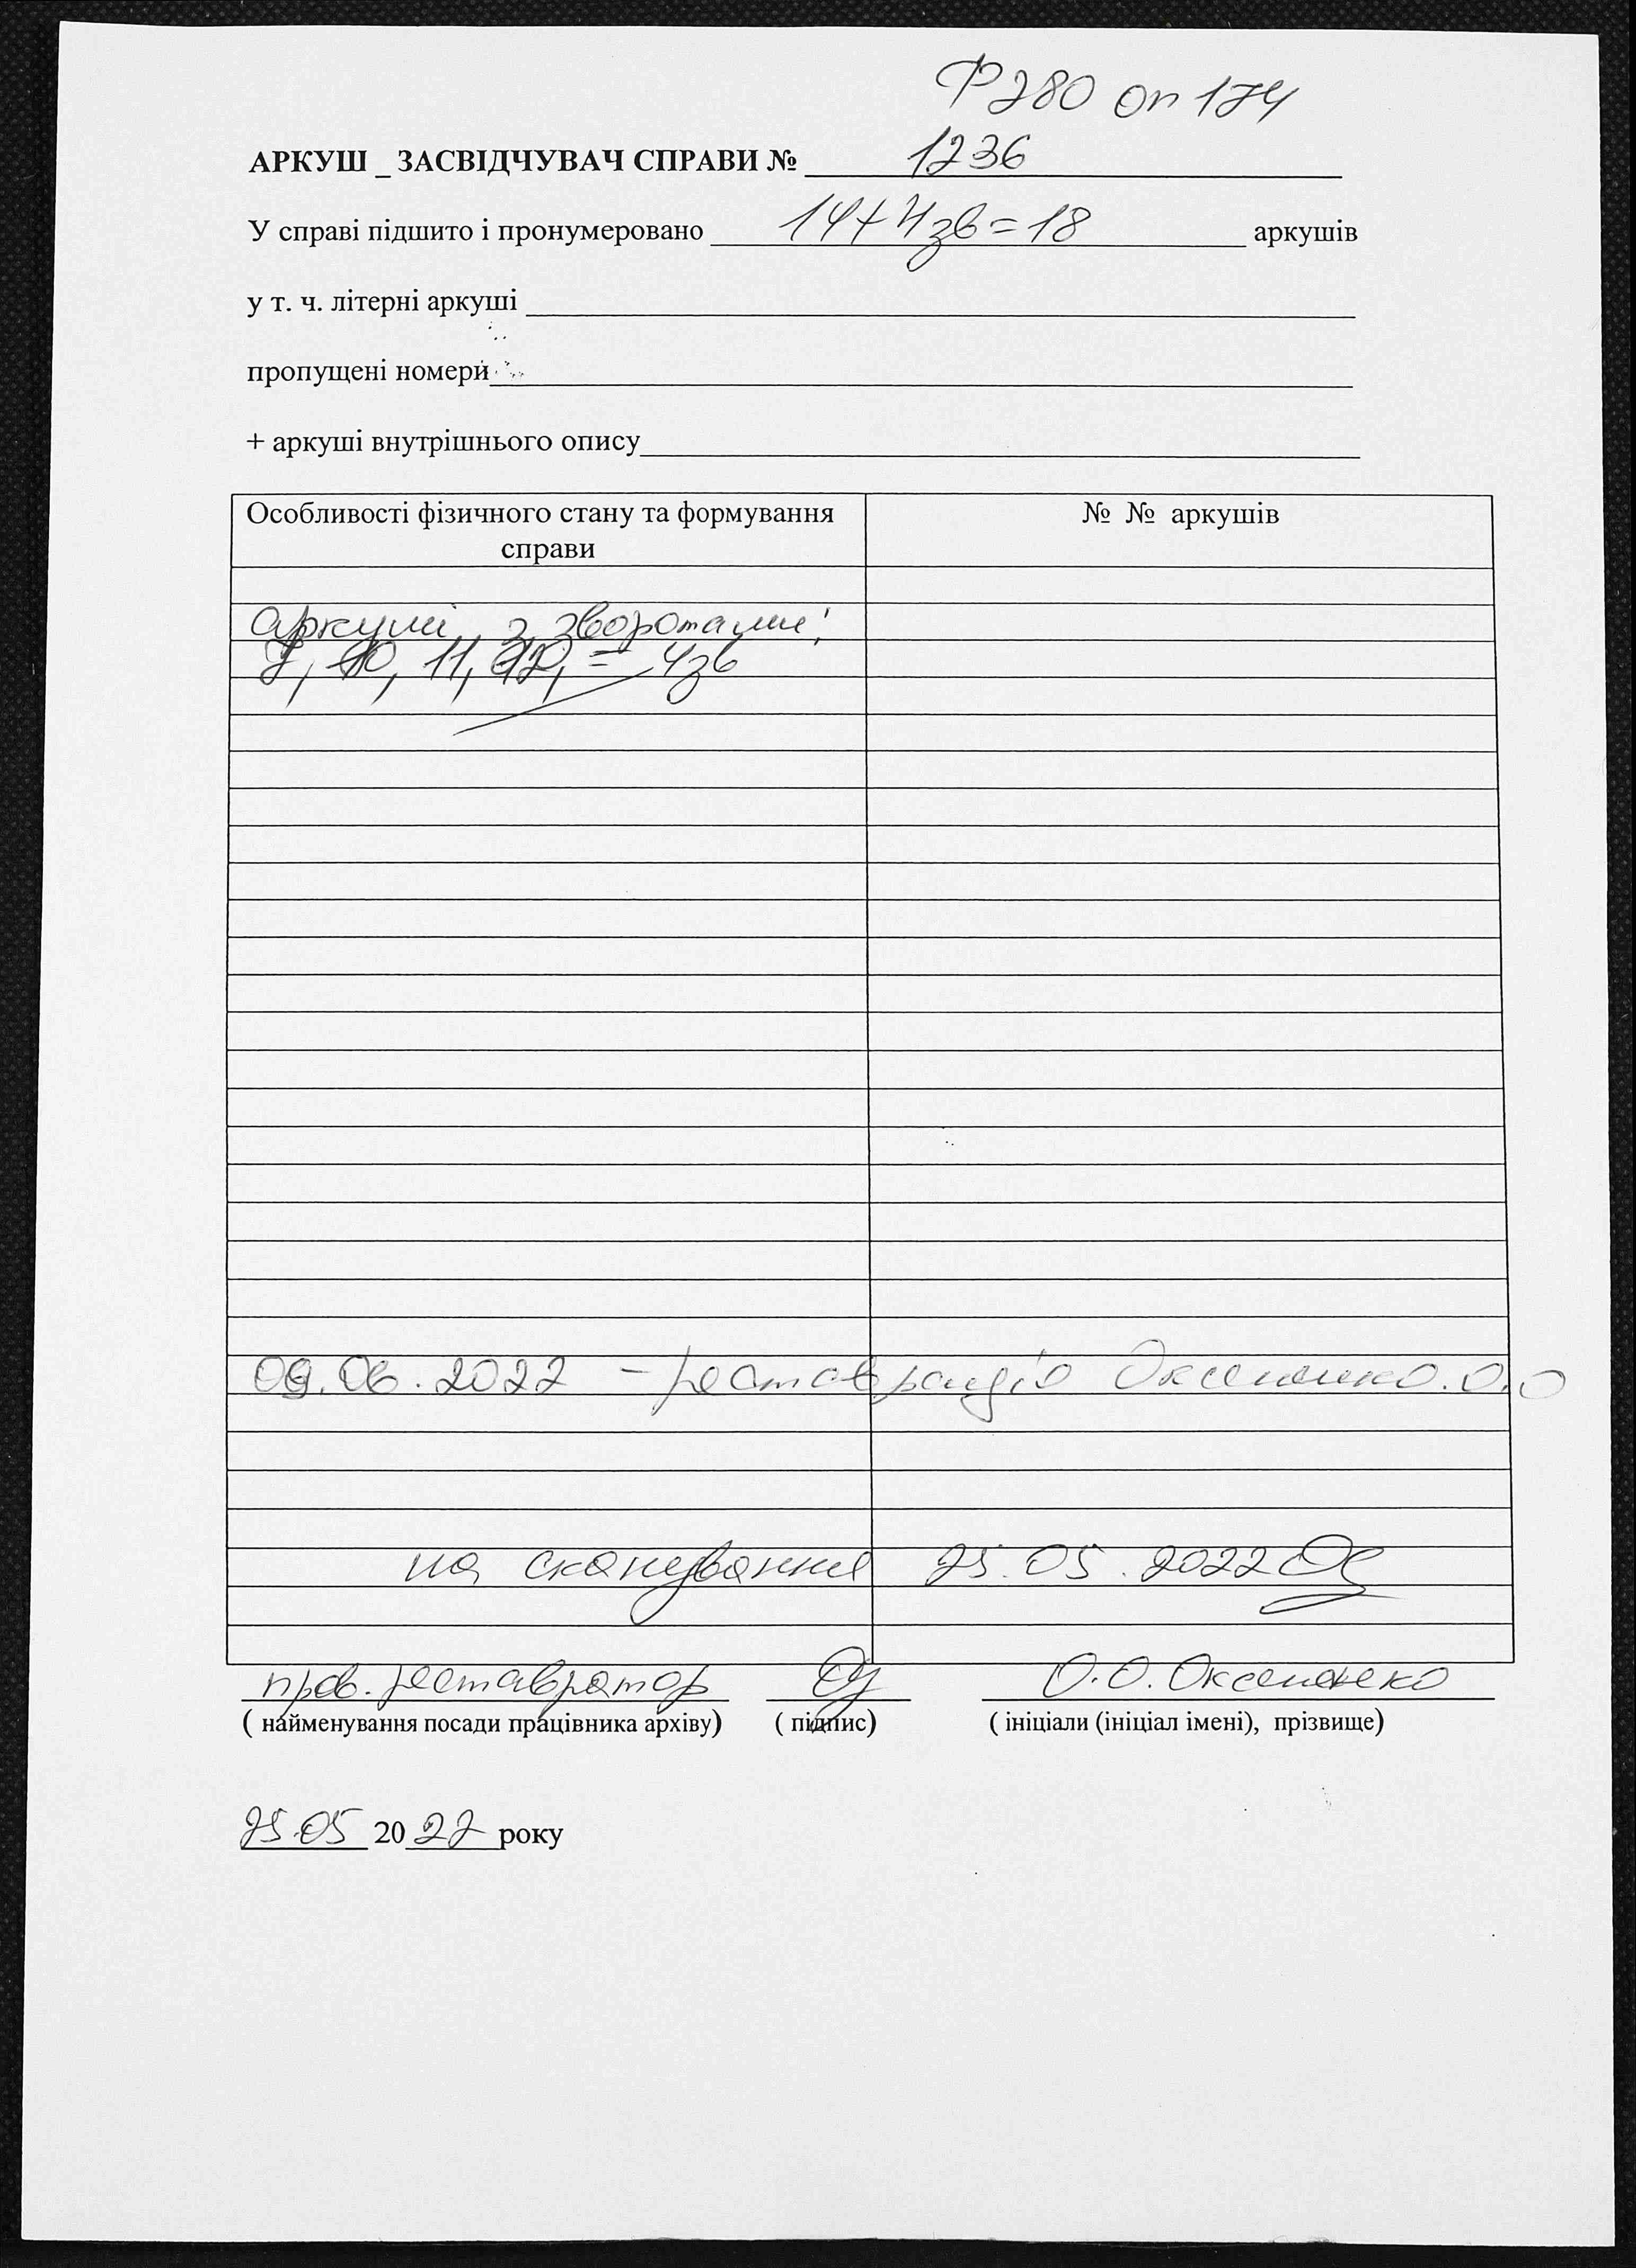 Ф 280 оп 174
АРКУШ _ ЗАСВІДЧУВАЧ СПРАВИ № 1236
У справі підшито і пронумеровано 14+4зв=18 аркушів
у т. ч. літерні аркуші
пропущені номери
+ аркуші внутрішнього опису
Особливості фізичного стану та формування справи
№ № аркушів
аркуші з зворотами:
7, 10, 11, 12, = 4зв
09.06.2022 – реставрація Оксененко.О.О
на сканування 25.05.2022
пров. реставратор О.О. Оксененко
( найменування посади працівника архіву) ( підпис) ( ініціали (ініціал імені), прізвище)
25.05 2022 року